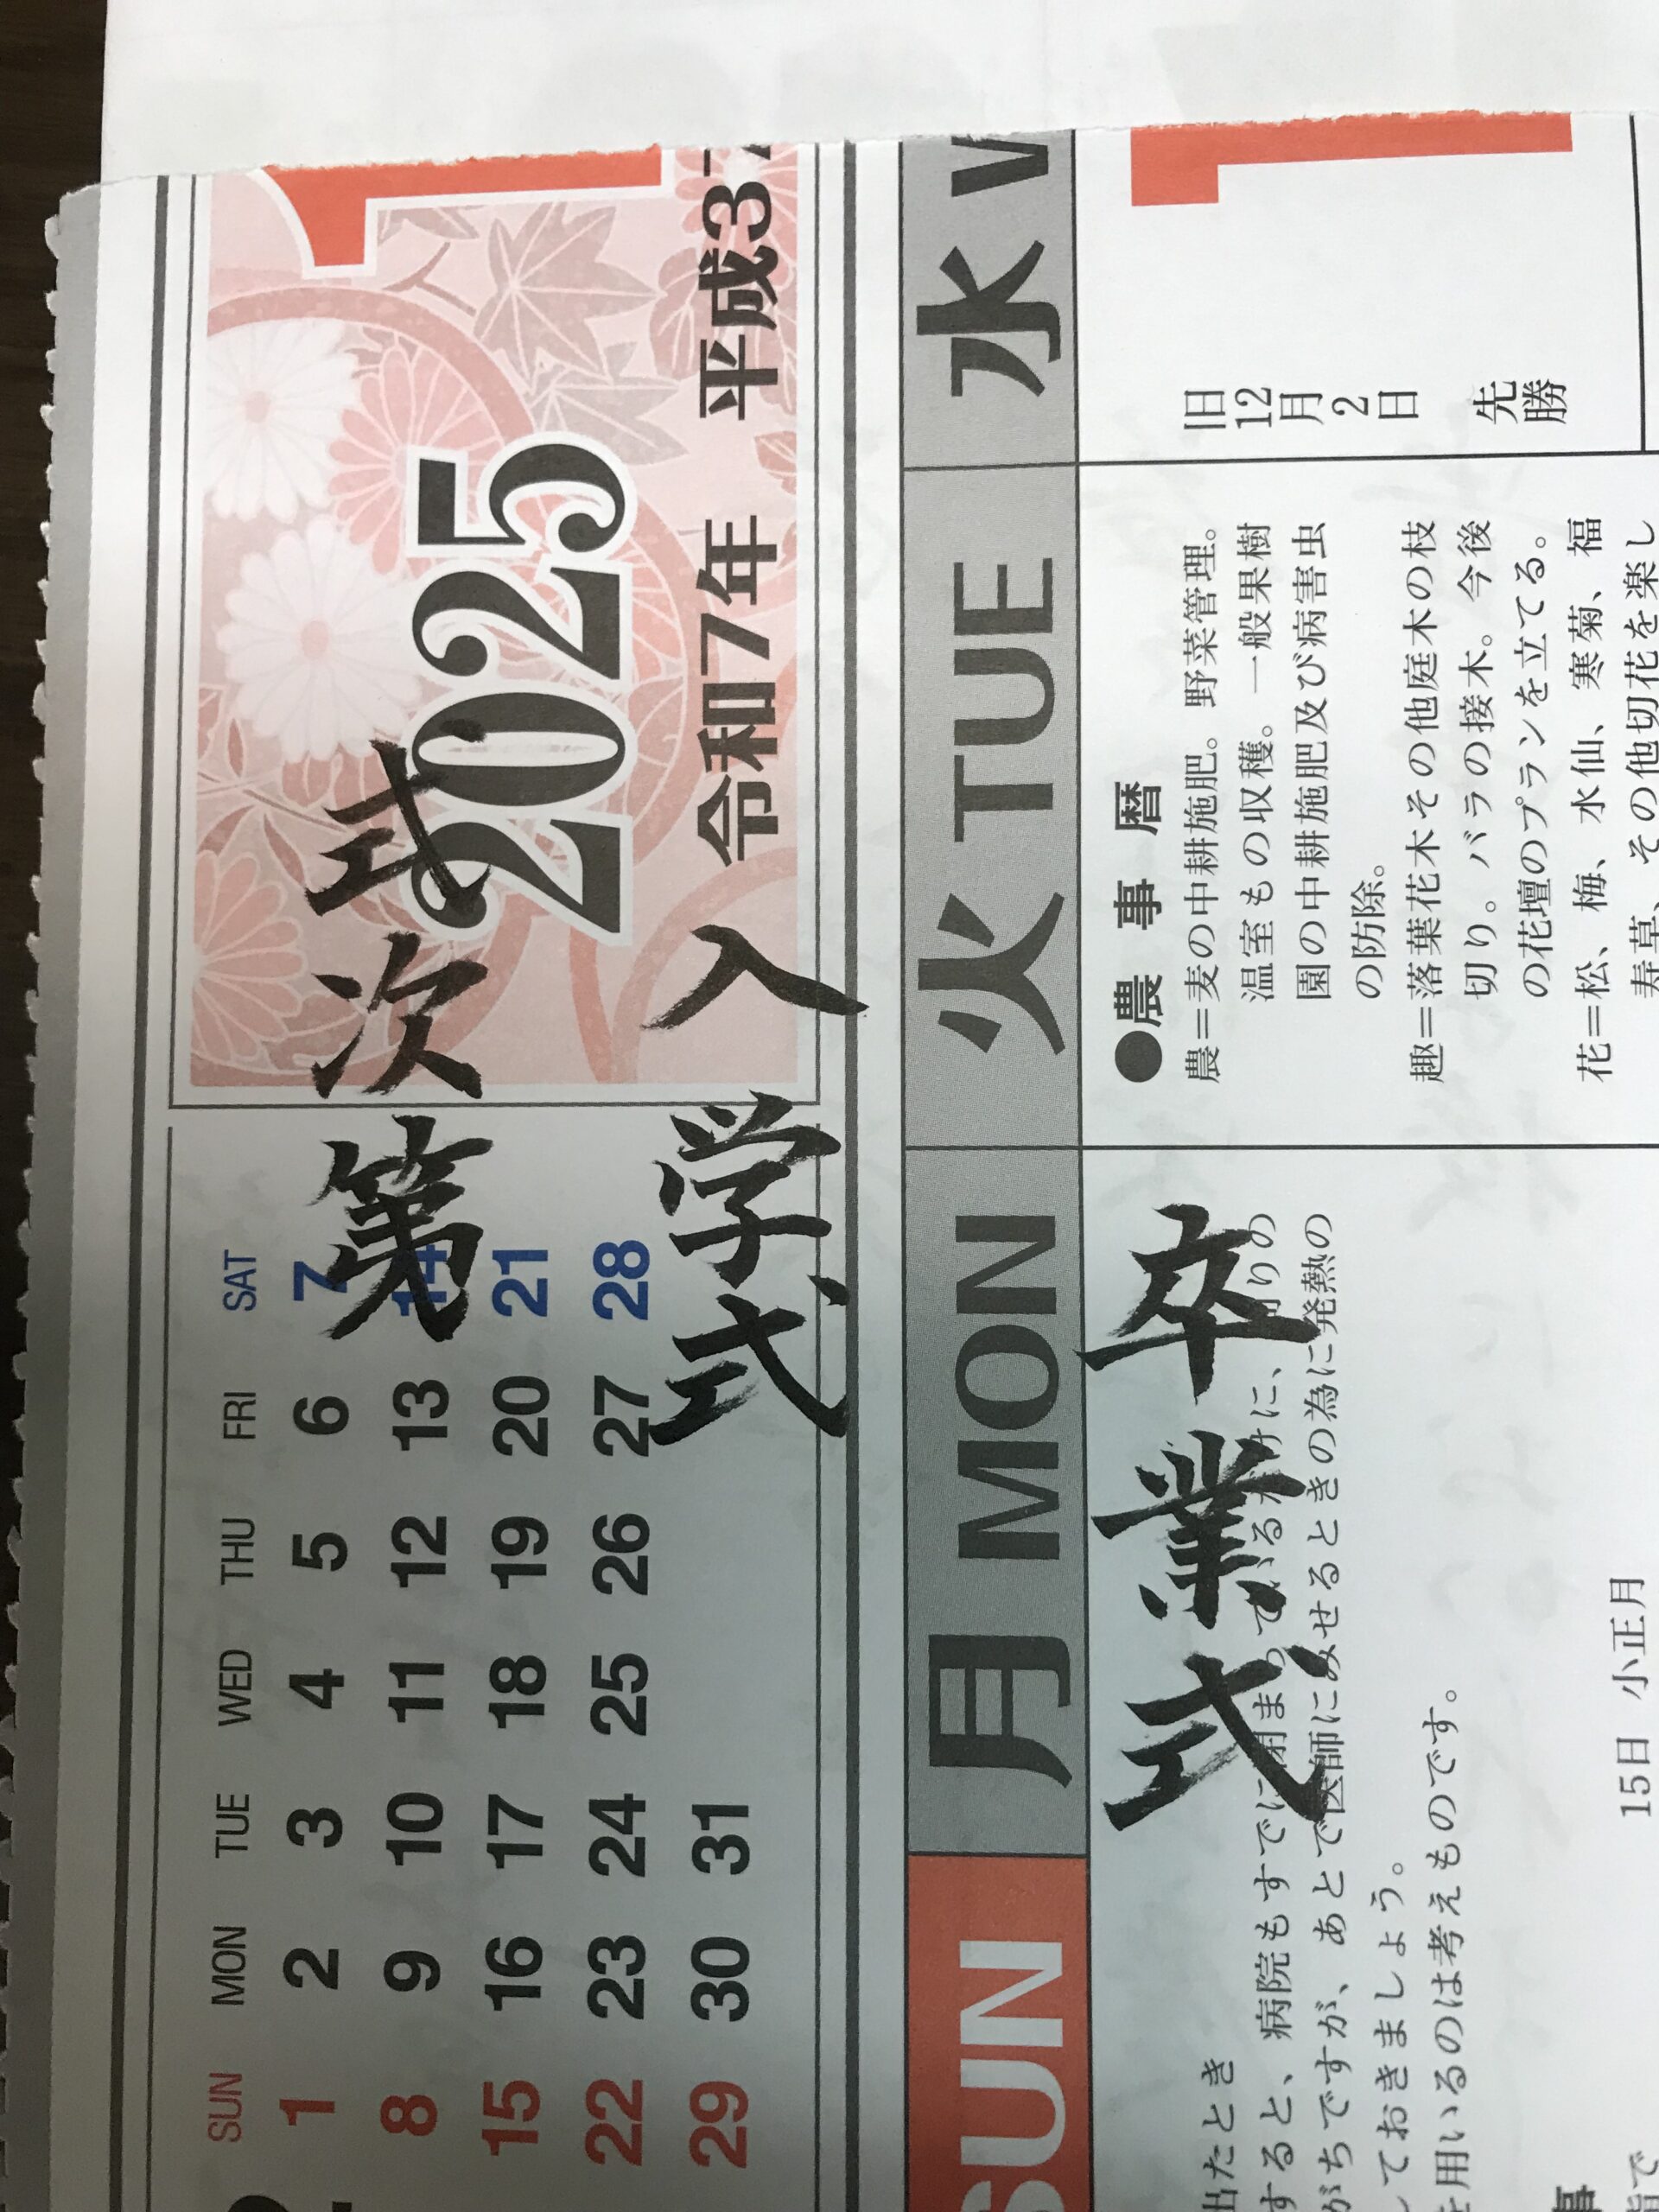 式次第
入学式
卒業式
2025
令和7年 平成37
1
SUN MON TUE WED THU FRI SAT
1 2 3 4 5 6 7
8 9 10 11 12 13 14
15 16 17 18 19 20 21
22 23 24 25 26 27 28
29 30 31
SUN
月 MON
火 TUE
水
1
旧12月2日
先勝
●農事暦
農＝麦の中耕施肥。野菜管理。
温室もの収穫。一般果樹
園の中耕施肥及び病害虫
の防除。
趣＝落葉花木その他庭木の枝
切り。バラの接木。今後
の花壇のプランを立てる。
花＝松、梅、水仙、寒菊、福
寿草、その他切花を楽し
出たとき
すると、病院もすでに閉まっている
がちですが、あとで医師にみせるときの為に発熱の
ておきましょう。
用いるのは考えものです。
15日 小正月